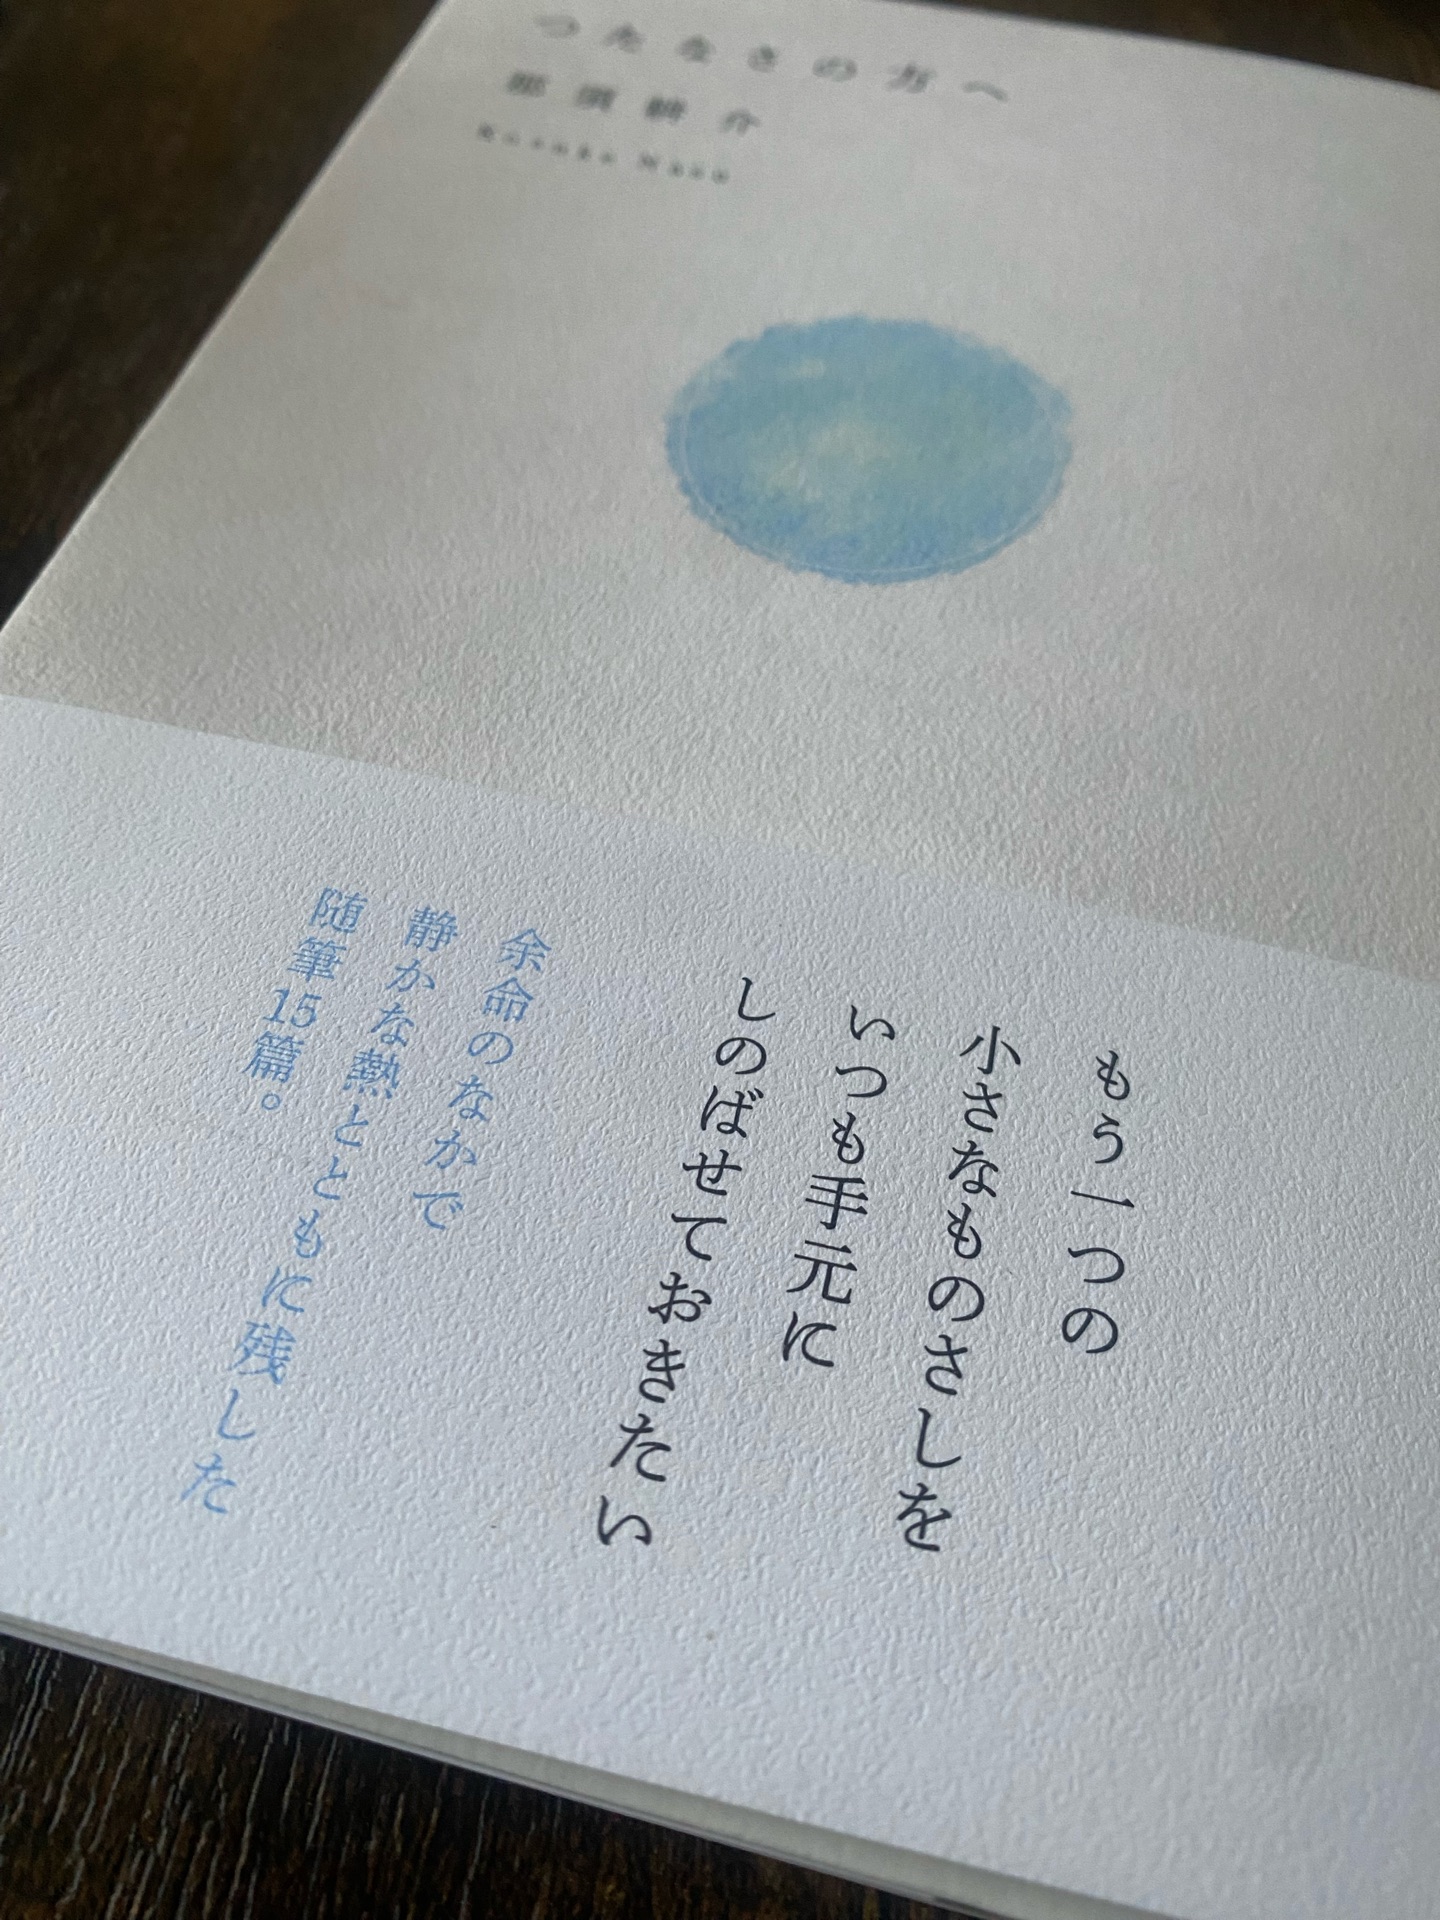 つたなさの方へ
那須耕介
Kosuke Nasu
もう一つの
小さなものさしを
いつも手元に
しのばせておきたい
余命のなかで
静かな熱とともに残した
随筆15篇。